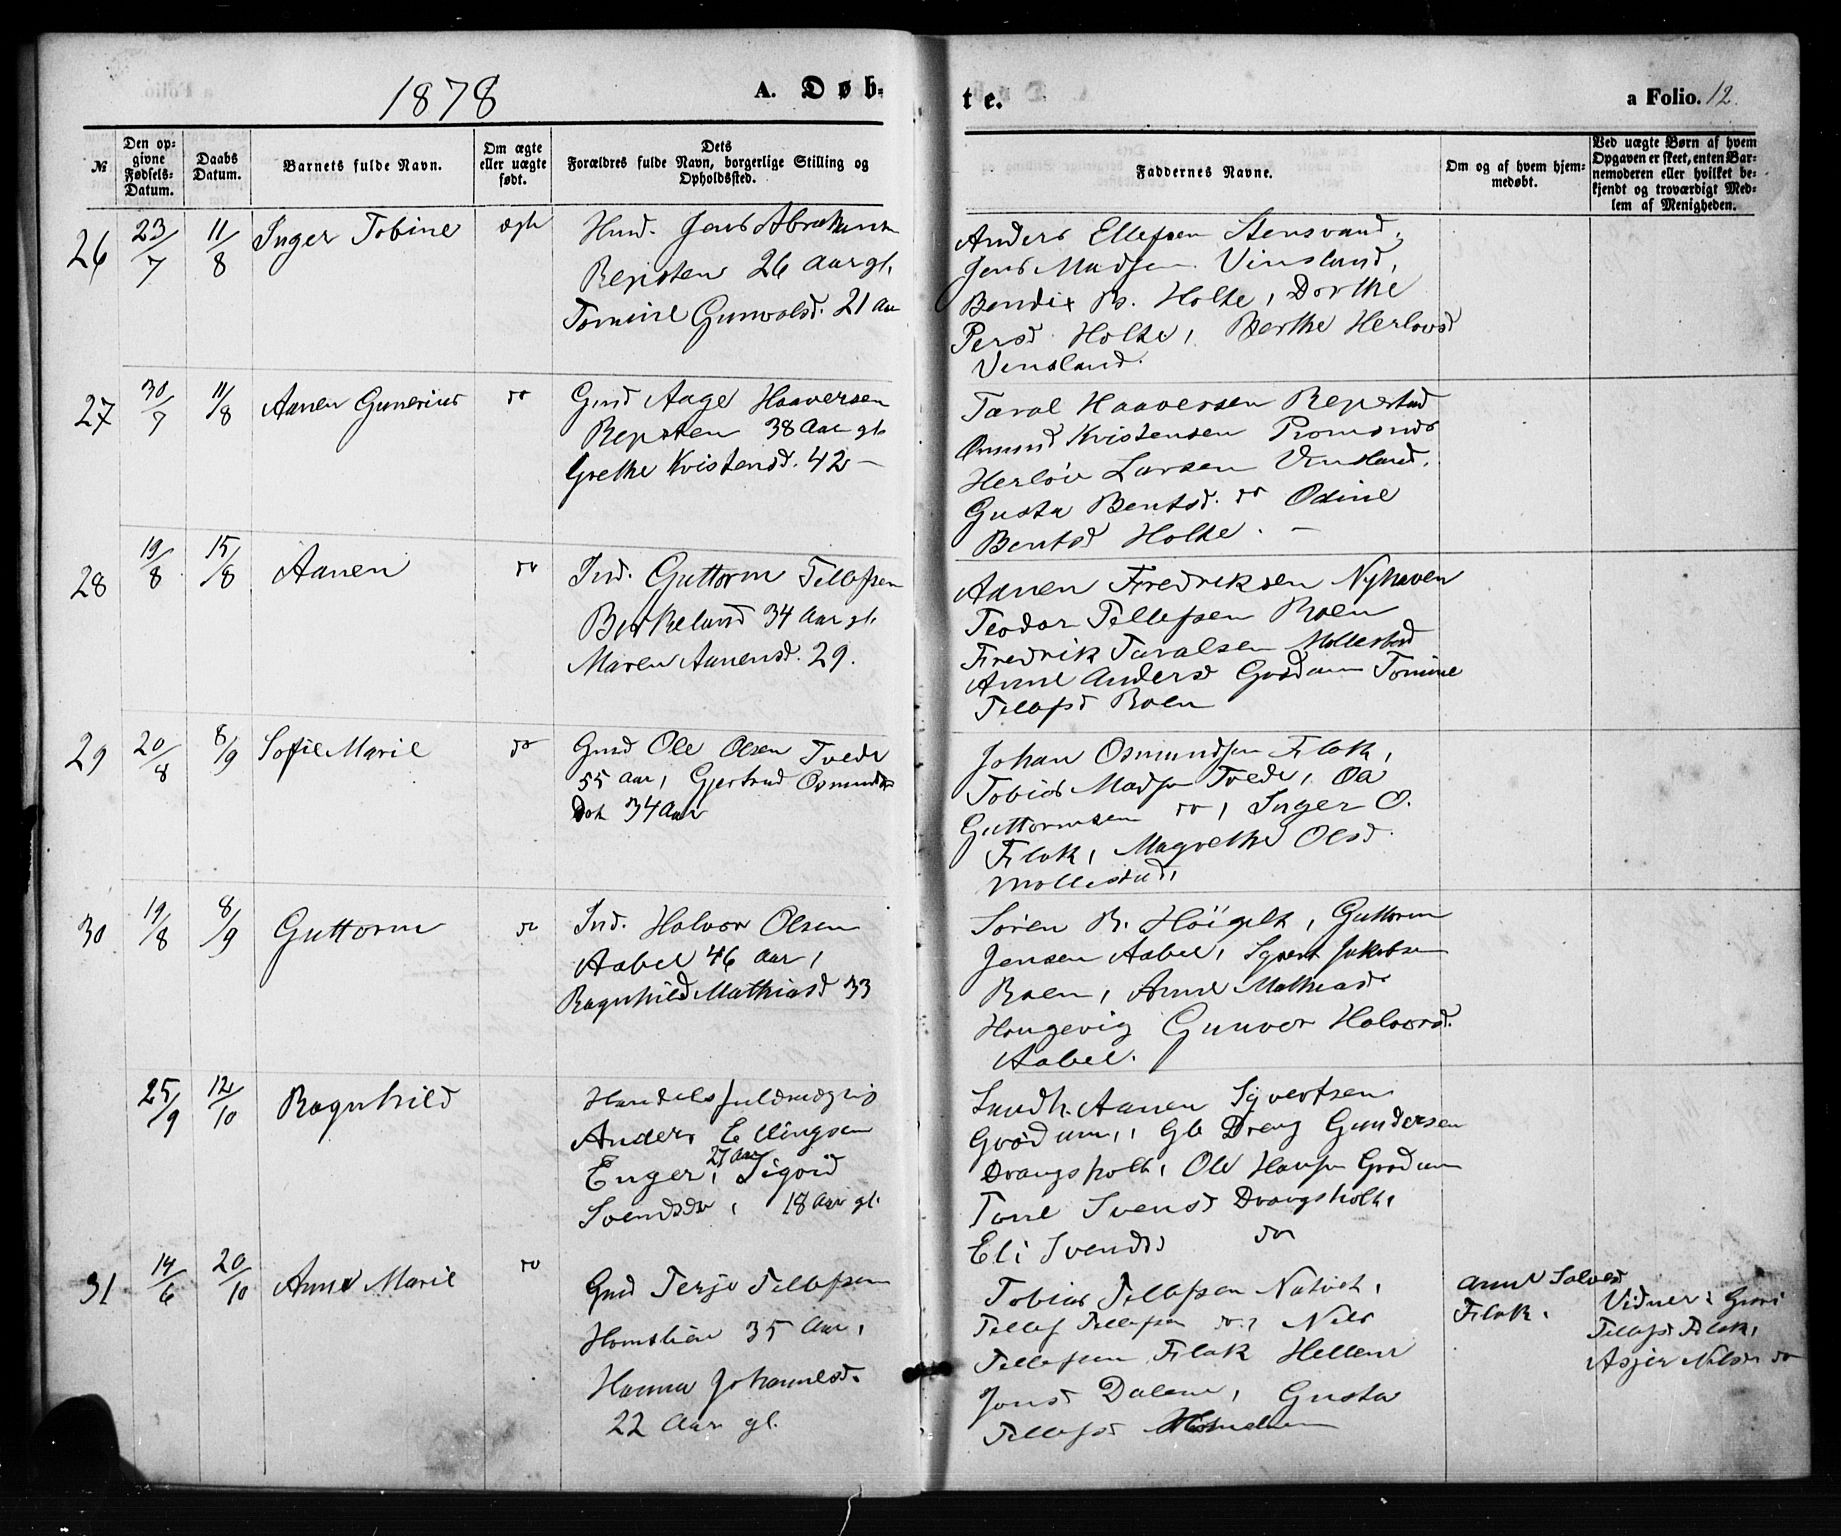 1878
A. Døb-
te.
a Folio. 12.
№
Den op-
givne
Fødsels-
Datum.
Daabs
Datum.
Barnets fulde Navn.
Om ægte
eller uægte
født.
Dets
Forældres fulde Navn, borgerlige Stilling og
Opholdssted.
Faddernes Navne.
Om og af hvem hjem-
medøbt.
Ved uægte Børn af hvem
Opgaven er skeet, enten Bar-
nemoderen eller hvilket be-
kjendt og troværdigt Med-
lem af Menigheden.
26
23/7
11/8
Inger Tobine
ægte
Hmd. Jens Abrahamsen
Repsten 26 aar gl.
Tomine Gunvolsd. 21 aar
Anders Ellefsen Stensvand,
Jens Madsen Vinsland,
Bendix B. Holte, Dorthe
Persd Holte, Berthe Herlovsd
Vinsland.
27
30/7
11/8
Aanen Gunerius
do
Gmd Aage Haaversen
Repsten 38 Aar gl.
Grethe Kristensd. 42 —
Taral Haaversen Repstad
Osmund Kristensen
Herlöv Larsen Vinsland.
Gusta Bentsd. do Odine
Bentsd Holte. —
28
19/8
15/8
Aanen
do
Ind. Guttorm Tellefsen
Birkeland 34 Aar gl.
Maren Aanensd. 29.
Aanen Fredriksen Nyhaven
Teodor Tellefsen Boen
Fredrik Taralsen Mollestad
Anne Andersd Grødum Tomine
Tellefsd Boen
29
20/8
8/9
Sofie Marie
do
Gmd Ole Olsen Tvede
55 aar, Gjertrud Osmunds
Dat 34 Aar
Johan Osmundsen Flak,
Tobias Madsen Tvede, Ole
Guttormsen do, Inger O.
Flak, Magrethe Olsd.
Mollestad,
30
19/8
8/9
Guttorm
do
Ind. Halvor Olsen
Aabel 46 aar,
Ragnhild Mathiasd 33
Sören B. Höigilt, Guttorm
Jensen Aabel, Syvert Jakobsen
Boen, Anne Mathiasd
Haugevig Gunvor Halvorsd.
Aabel.
25/9
12/10
Ragnhild
Handelsfuldmægtig
Anders Ellingsen
Enger, 27 Aar Sigrid
Svendsdr, 18 Aar gl.
Landh. Aanen Syvertsen
Grødum,, Gb Dreng Gundersen
Drangsholt, Ole Hansen Grødum
Tone Svensd Drangsholt,
Eli Svendsd do
31
14/6
20/10
Anne Marie
do
Gmd Terje Tellefsen
Homslien 35 Aar,
Hanna Johannesd.
22 Aar gl.
Tobias Tellefsen Natvet,
Tellef Tellefsen do, Nils
Tellefsen Flak Hellene
Jensd Dalene, Gusta
Tellefsd
Anne Salvesd
Flak.
Vidner: Guri
Tellefsd Flak,
Nilsen do